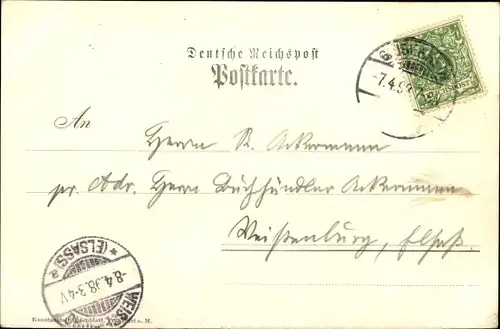 Deutsche Reichspost
Postkarte.
An
Herrn R. Ackermann
pr. Adr. Herrn Buchhändler Ackermann
Weißenburg, Elsaß.
-7.4.98
(ELSASS)
-8.4.98.3-4V
WEISS